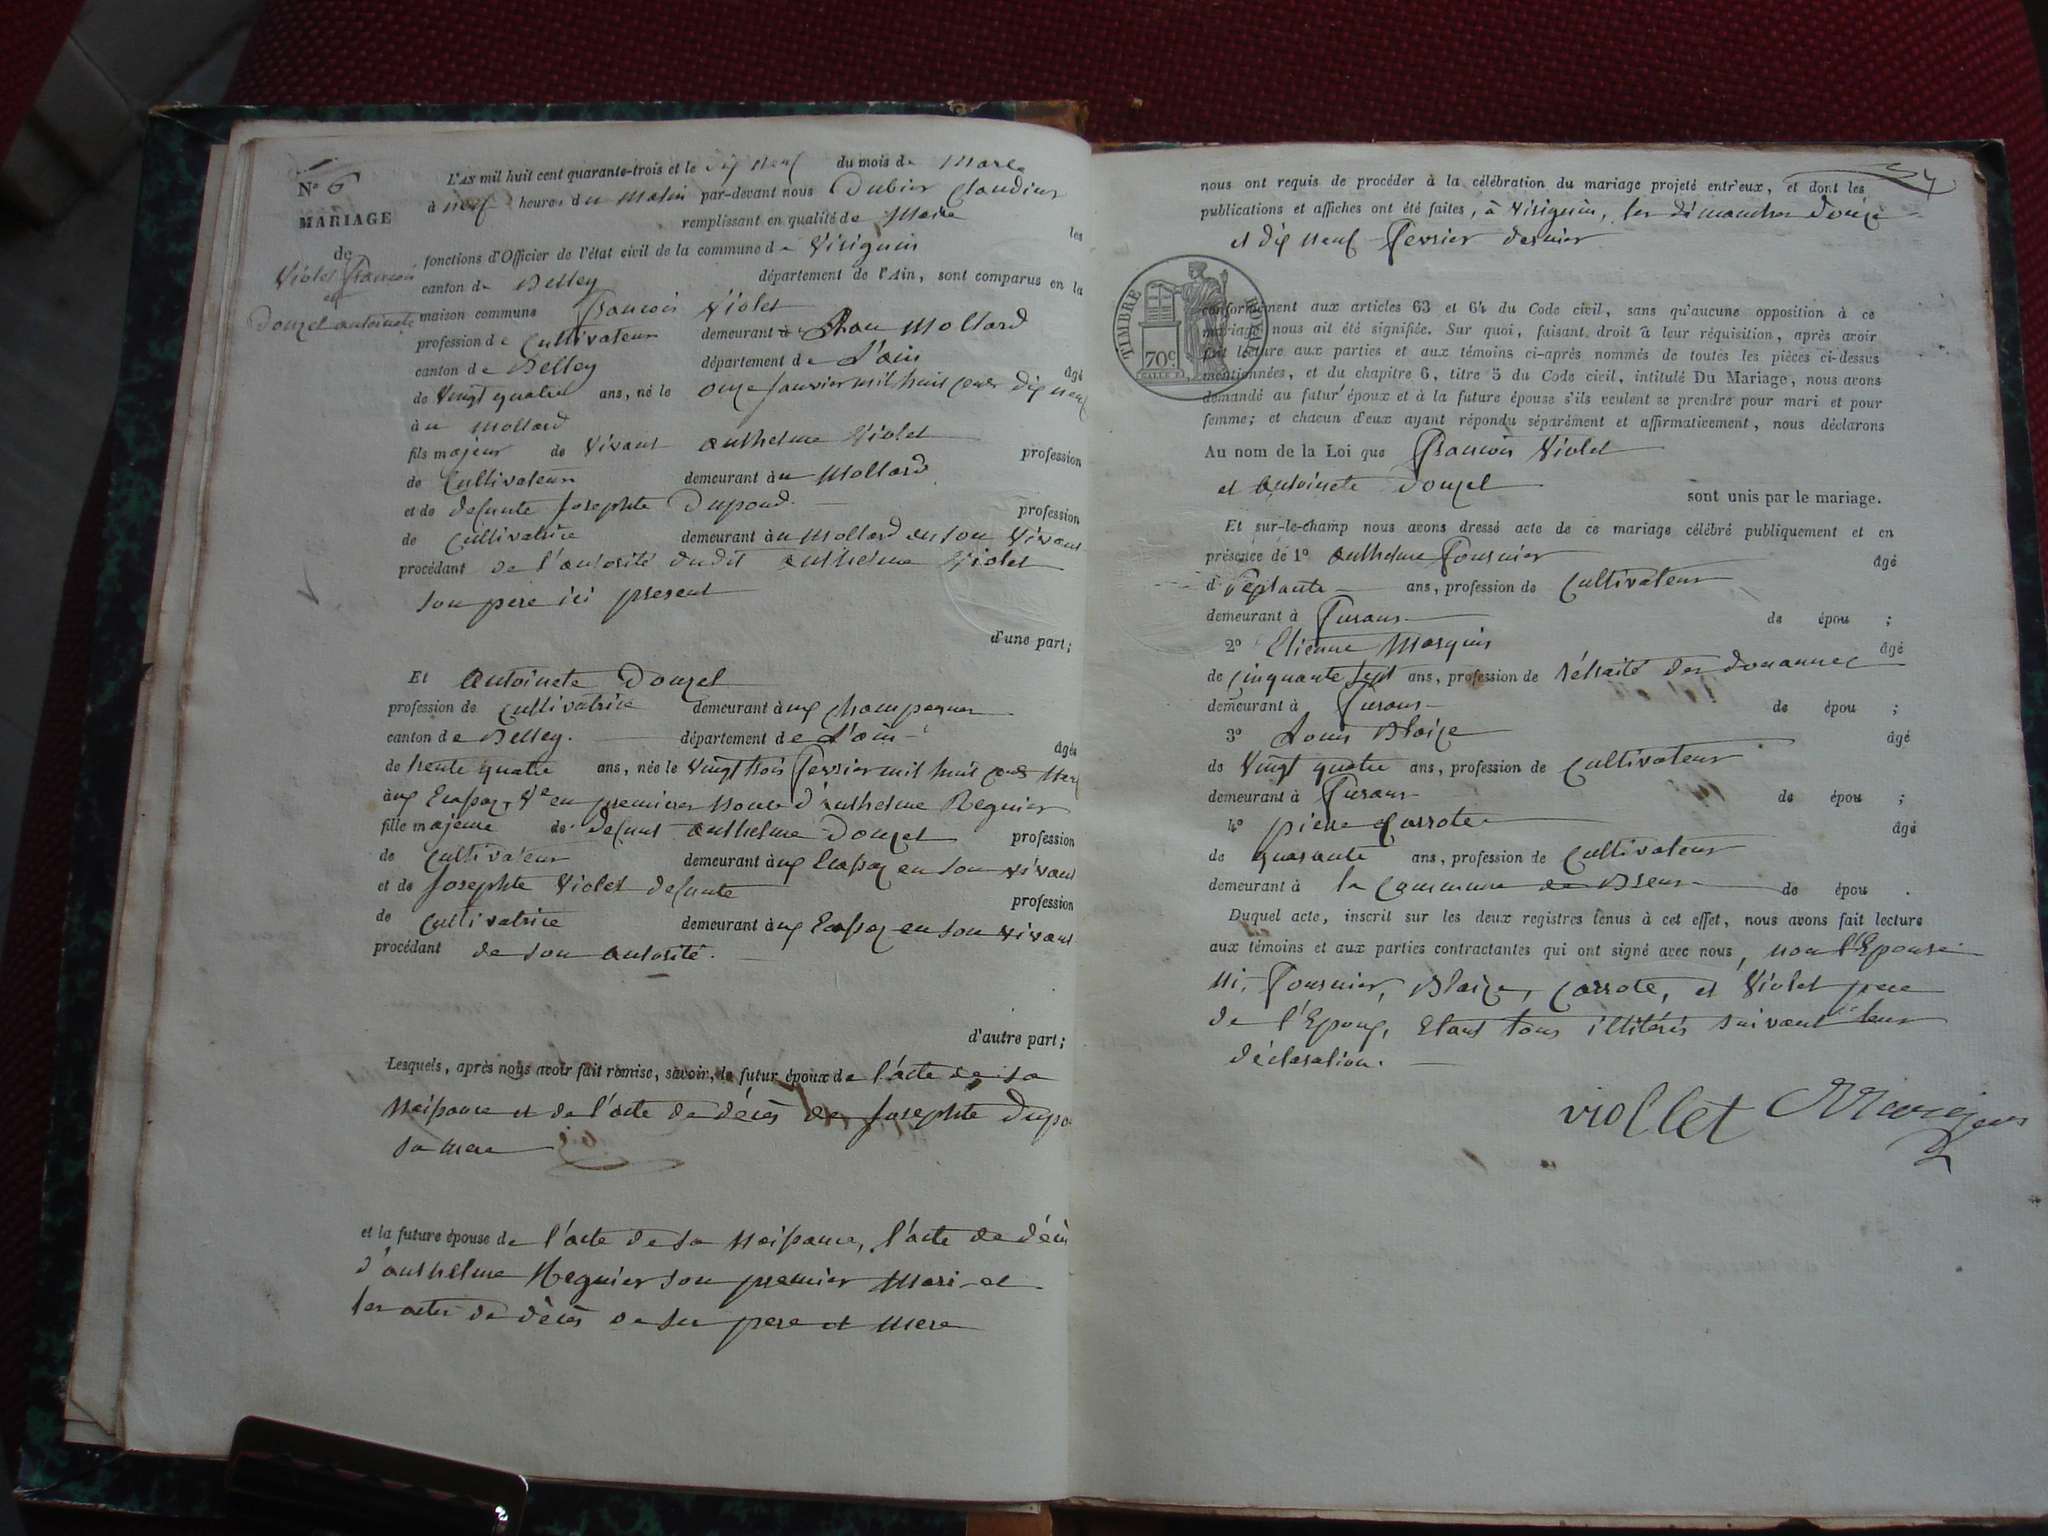 N° 6
MARIAGE
de
Violet François
et
Douzel antoinete
L'AN mil huit cent quarante-trois et le dix neuf du mois de Mars
à neuf heures du matin par-devant nous Dubier Claudius
remplissant en qualité de Maire les
fonctions d'Officier de l'état civil de la commune de Virignin
canton de Belley département de l'Ain, sont comparus en la
maison commune François Violet
profession de Cultivateur demeurant à Mollard
canton de Belley département de L'ain
âgé
de Vingt quatre ans, né le onze Janvier mil huit cent dix neuf
à u mollard
fils majeur de Vivant anthelme Violet
profession
de Cultivateur demeurant à u Mollard
et de defunte Josephte Dupond.
profession
de Cultivatrice demeurant à u Mollard en son Vivant
procédant de l'autorité dudit anthelme Violet
son pere ici present
d'une part;
Et Antoinete Douzel
profession de Cultivatrice demeurant à ux Champagnes
canton de Belley. département de L'ain
âgée
de trente quatre ans, née le Vingt trois fevrier mil huit cent neuf
à ux Ecassaz, Ve en premieres noces d'anthelme Regnier
fille majeure de defunt anthelme Douzel profession
de Cultivateur demeurant à ux Ecassaz en son vivant
et de Josephte Violet defunte
profession
de Cultivatrice demeurant à ux Ecassaz en son vivant
procédant de son autorité.
d'autre part;
Lesquels, après nous avoir fait remise, savoir, le futur époux de l'acte de sa
Naissance et de l'acte de décès de Josephte Dupo
sa mere
et la future épouse de l'acte de sa Naissance, l'acte de décès
d'anthelme Regnier son premier Mari et
les actes de décès de ses pere et mere
nous ont requis de procéder à la célébration du mariage projeté entr'eux, et dont les
publications et affiches ont été faites, à Virignin, les dimanches douze
et dix neuf fevrier dernier
TIMBRE ROYAL
70c
conformément aux articles 63 et 64 du Code civil, sans qu'aucune opposition à ce
mariage nous ait été signifiée. Sur quoi, faisant droit à leur réquisition, après avoir
fait lecture aux parties et aux témoins ci-après nommés de toutes les pièces ci-dessus
mentionnées, et du chapitre 6, titre 5 du Code civil, intitulé Du Mariage, nous avons
demandé au futur époux et à la future épouse s'ils veulent se prendre pour mari et pour
femme; et chacun d'eux ayant répondu séparément et affirmativement, nous déclarons
Au nom de la Loi que François Violet
et Antoinete Douzel
sont unis par le mariage.
Et sur-le-champ nous avons dressé acte de ce mariage célébré publiquement et en
présence de 1° anthelme Fournier
âgé
d septante ans, profession de Cultivateur
demeurant à Purans de épou ;
2° Etienne Marquis
âgé
de Cinquante sept ans, profession de rétraité des douannes
demeurant à Purans de épou ;
3° Louis Blaize
âgé
de Vingt quatre ans, profession de Cultivateur
demeurant à Purans de épou ;
4° pierre Carrote
âgé
de quarante ans, profession de Cultivateur
demeurant à la Commune de Brens de épou .
Duquel acte, inscrit sur les deux registres tenus à cet effet, nous avons fait lecture
aux témoins et aux parties contractantes qui ont signé avec nous, non l'Epouse
Ni, Fournier, Blaize, Carrote, et Violet pere
de l'Epoux, Etant tous illitérés suivant leur
déclaration.
viollet Marquis